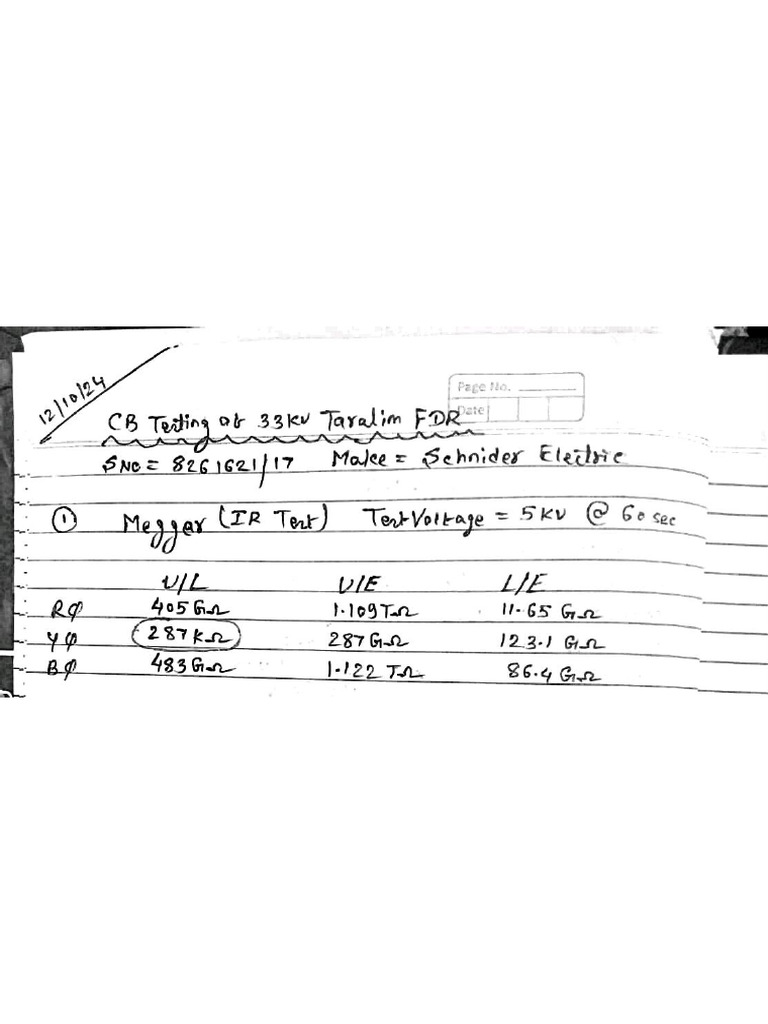 12/10/24
Page No.
Date
CB Testing at 33KV Taralim FDR
SNO = 8261621/17 Make = Schnider Electric
① Meggar (IR Test) Test Voltage = 5KV @ 60 sec
U/L U/E L/E
Rφ 405 GΩ 1.109 TΩ 11.65 GΩ
Yφ 287 KΩ 287 GΩ 123.1 GΩ
Bφ 483 GΩ 1.122 TΩ 86.4 GΩ